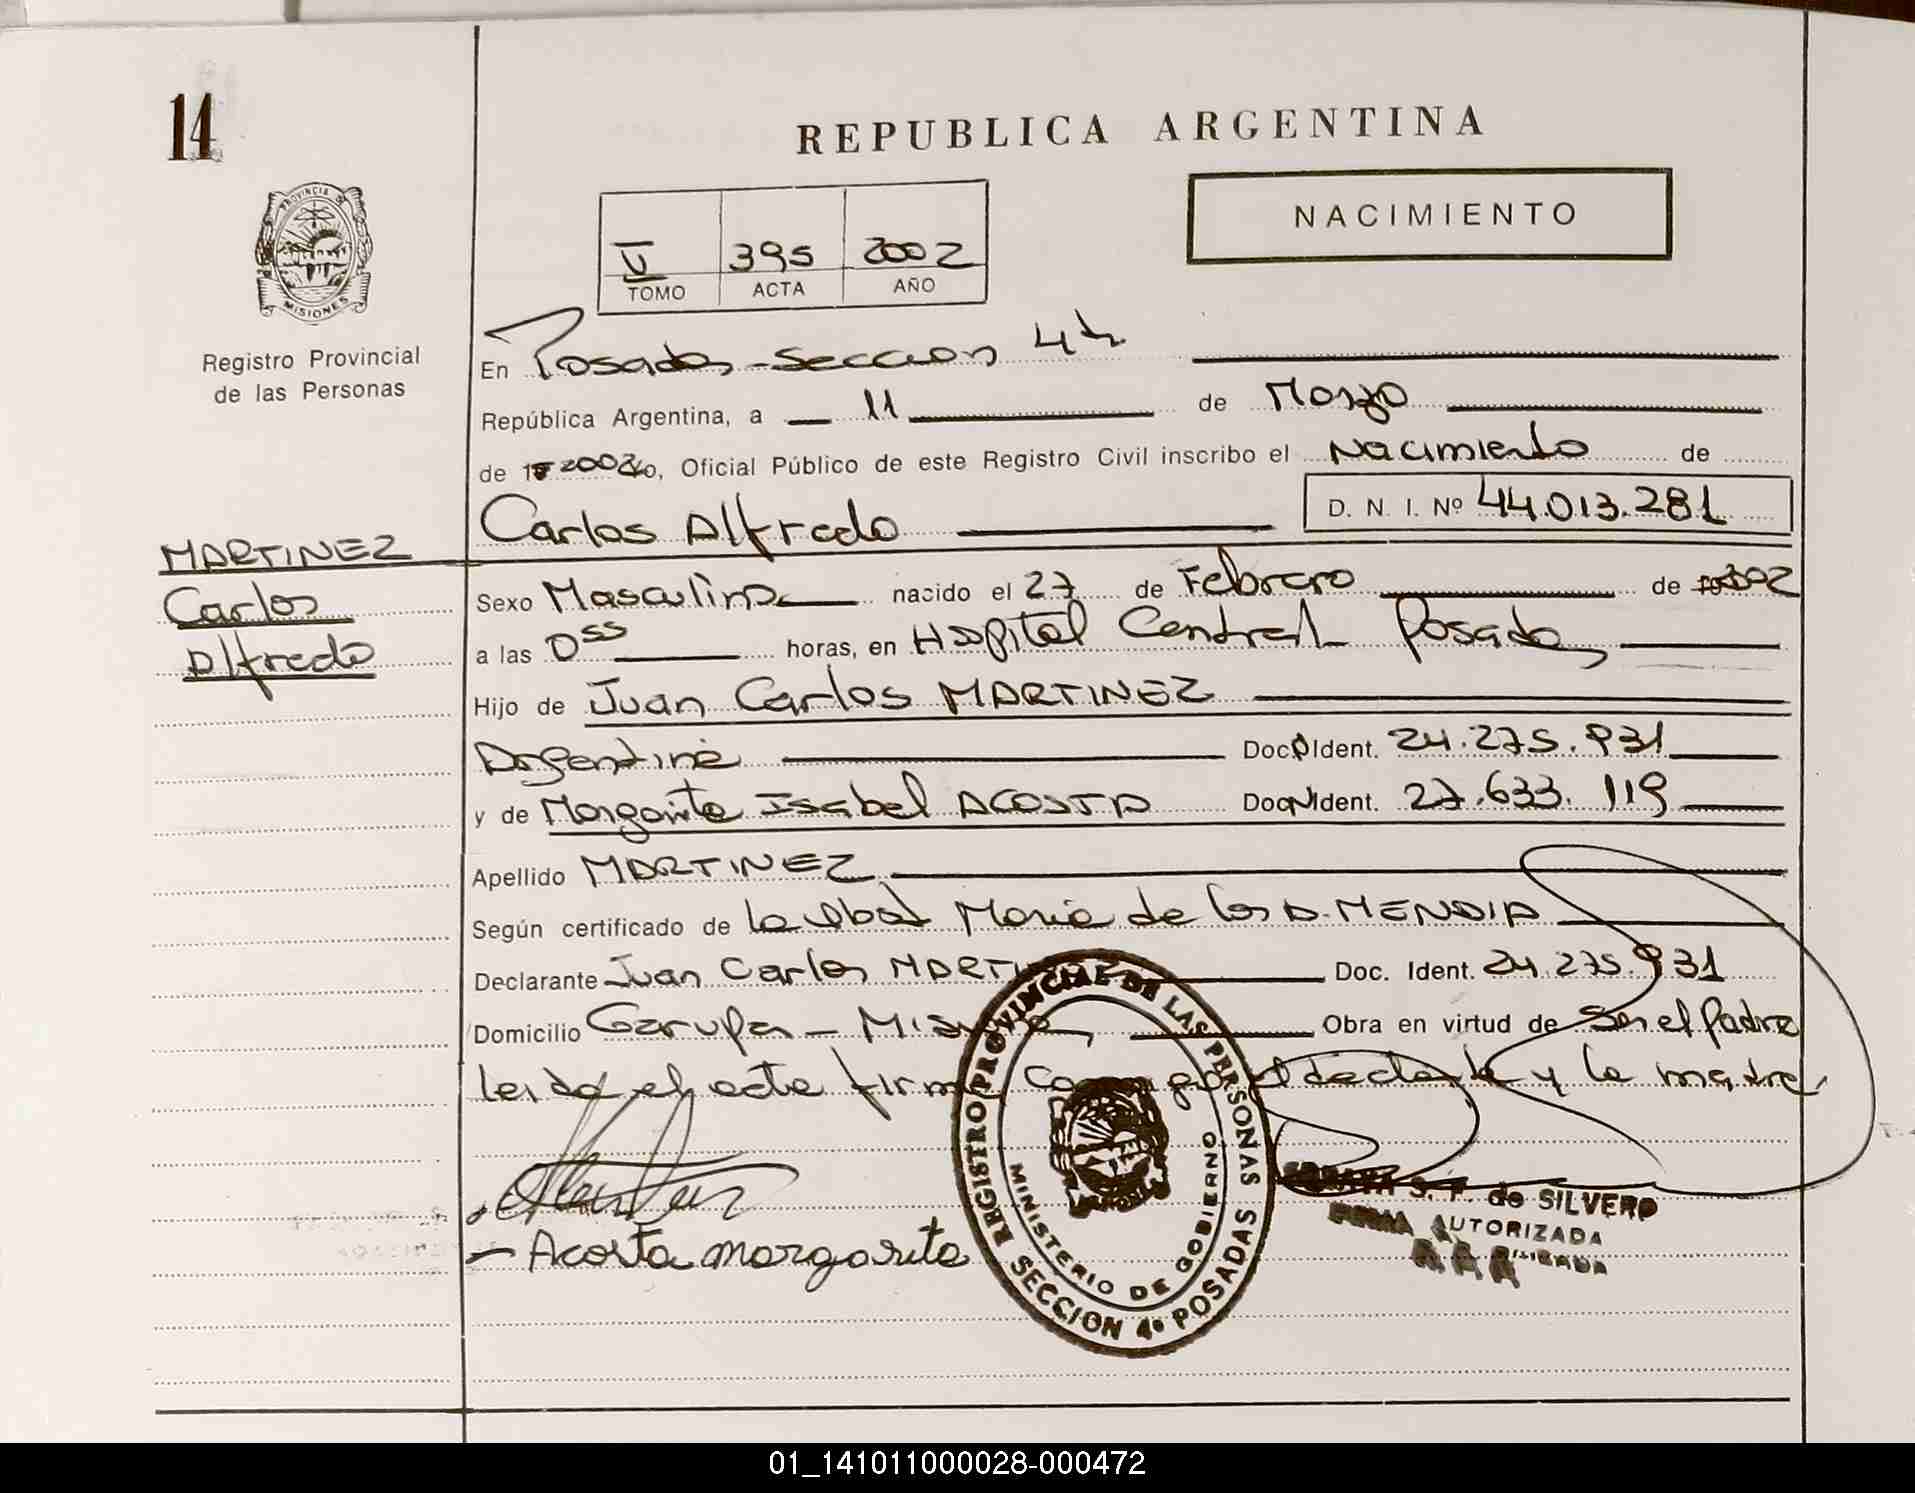 14
REPUBLICA ARGENTINA
NACIMIENTO
V 395 2002
TOMO ACTA AÑO
PROVINCIA DE
MISIONES
Registro Provincial
de las Personas
En Posadas - Seccion 4ta
República Argentina, a 11 de Marzo
de 2002 yo, Oficial Público de este Registro Civil inscribo el Nacimiento de
Carlos Alfredo D. N. I. Nº 44.013.281
MARTINEZ
Carlos
Alfredo
Sexo Masculino nacido el 27 de Febrero de 2002
a las 0 55 horas, en Hospital Central Posadas
Hijo de Juan Carlos MARTINEZ
Argentina Doc. Ident. 24.275.931
y de Margarita Isabel ACOSTA Doc. Ident. 27.633.119
Apellido MARTINEZ
Según certificado de la Obst Maria de los A. MENDIA
Declarante Juan Carlos MARTINEZ Doc. Ident. 24.275.931
Domicilio Garupa - Misiones Obra en virtud de Ser el Padre
leida el acta firma conmigo el declarante y la madre
Acosta margarita
REGISTRO PROVINCIAL DE LAS PERSONAS
MINISTERIO DE GOBIERNO
SECCION 4º POSADAS
S. F. de SILVERO
FIRMA AUTORIZADA
01_141011000028-000472